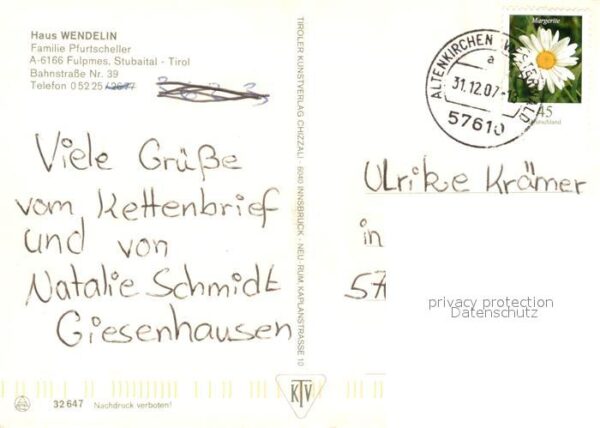 Haus WENDELIN
Familie Pfurtscheller
A-6166 Fulpmes, Stubaital - Tirol
Bahnstraße Nr. 39
Telefon 05225/
Viele Grüße
vom Kettenbrief
und von
Natalie Schmidt
Giesenhausen
32647 Nachdruck verboten!
TIROLER KUNSTVERLAG CHIZZALI · 6040 INNSBRUCK - NEU-RUM, KAPLANSTRASSE 10
KTV
Margerite
45
Deutschland
ALTENKIRCHEN WESTERWALD
a
31.12.07
57610
Ulrike Krämer
in
57
privacy protection
Datenschutz